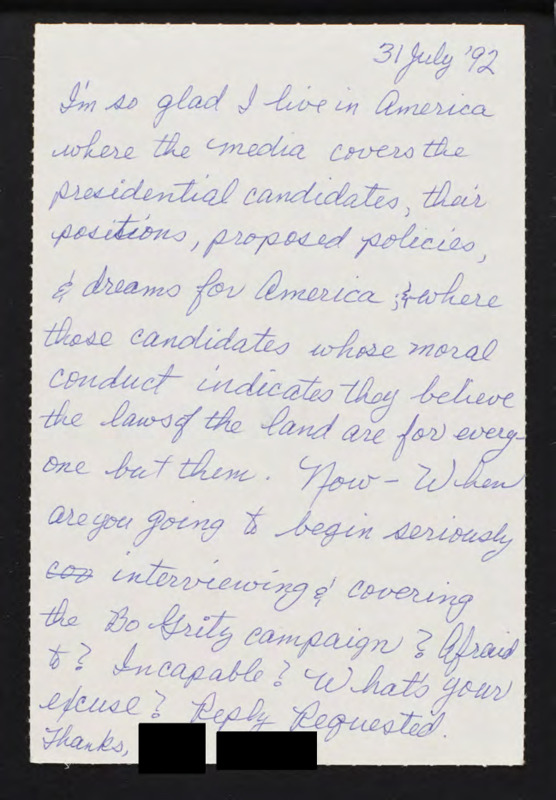 31 July '92
I'm so glad I live in America
where the media covers the
presidential candidates, their
positions, proposed policies,
& dreams for America ; & where
those candidates whose moral
conduct indicates they believe
the laws of the land are for every-
one but them. Now - When
are you going to begin seriously
interviewing & covering
the Bo Grity campaign? Afraid
to? Incapable? What's your
excuse? Reply Requested.
Thanks,